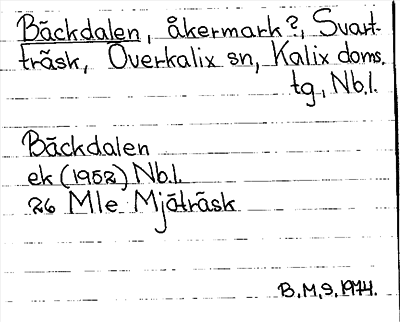 Bäckdalen, åkermark?, Svart-
träsk, Överkalix sn, Kalix doms.
tg, Nb.l.
Bäckdalen
ek (1952) Nb.l.
26 Mle Mjäträsk
B.M.S. 1974.